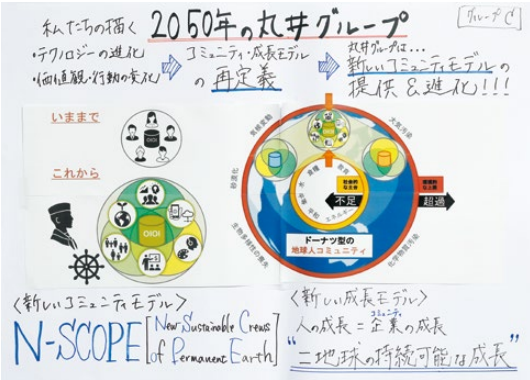 グループC
私たちの描く 2050年の丸井グループ
・テクノロジーの進化
・価値観・行動の変化
コミュニティ・成長モデル
の再定義
丸井グループは…
新しいコミュニティモデルの
提供&進化!!!
いままで
これから
OIOI
気候変動
大気汚染
砂漠化
生物多様性の喪失
化学物質汚染
教育
エネルギー
社会的な土台
不足
超過
ドーナツ型の
地球人コミュニティ
<新しいコミュニティモデル>
N-SCOPE [New Sustainable Crews
of Permanent Earth]
<新しい成長モデル>
人の成長=企業の成長
コミュニティ
"=地球の持続可能な成長"